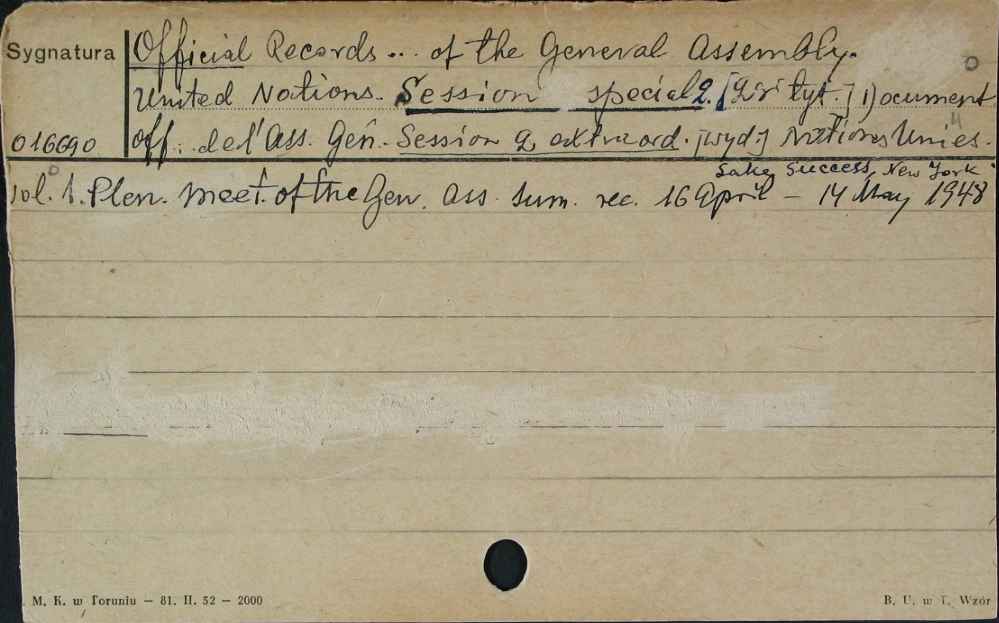 Sygnatura
Official Records ... of the General Assembly.
United Nations. Session special 2. [Gr. tyt.] Document
016690
off. de l'Ass. Gén. Session 2 extraord. [wyd.] Nations Unies.
Lake Success, New York
Vol. 1. Plen. meet. of the Gen. Ass. Sum. rec. 16 April – 14 May 1948
M. K. w Toruniu — 81. II. 52 — 2000
B. U. w T. Wzór